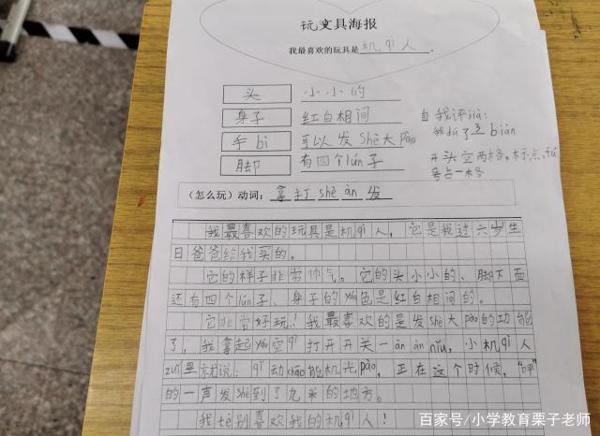 玩文具海报
我最喜欢的玩具是机qì人。
头 小小的
身子 红白相间
手bì 可以发shè大pào
脚 有四个lún子
自我评jià:
我改了3biàn
开头空两格,标点、fú
号占一格
(怎么玩)动词:拿打shè àn发
我最喜欢的玩具是机qì人,它是我过六岁生
日爸爸给我买的。
它的样子非常帅气。它的头小小的、脚下面
还有四个lún子、身子的yán色是红白相间的。
它非常好玩!我最喜欢的是发shè大pào的功能
了,我拿起yáo空qì打开开关一àn àn niǔ,小机qì人
zuǐ里说 qǐ动 能机光pào,正在这个时候,“呼”
的一声发shè到了九米的地方。
我tè别喜欢我的机qì人!
百家号/小学教育栗子老师